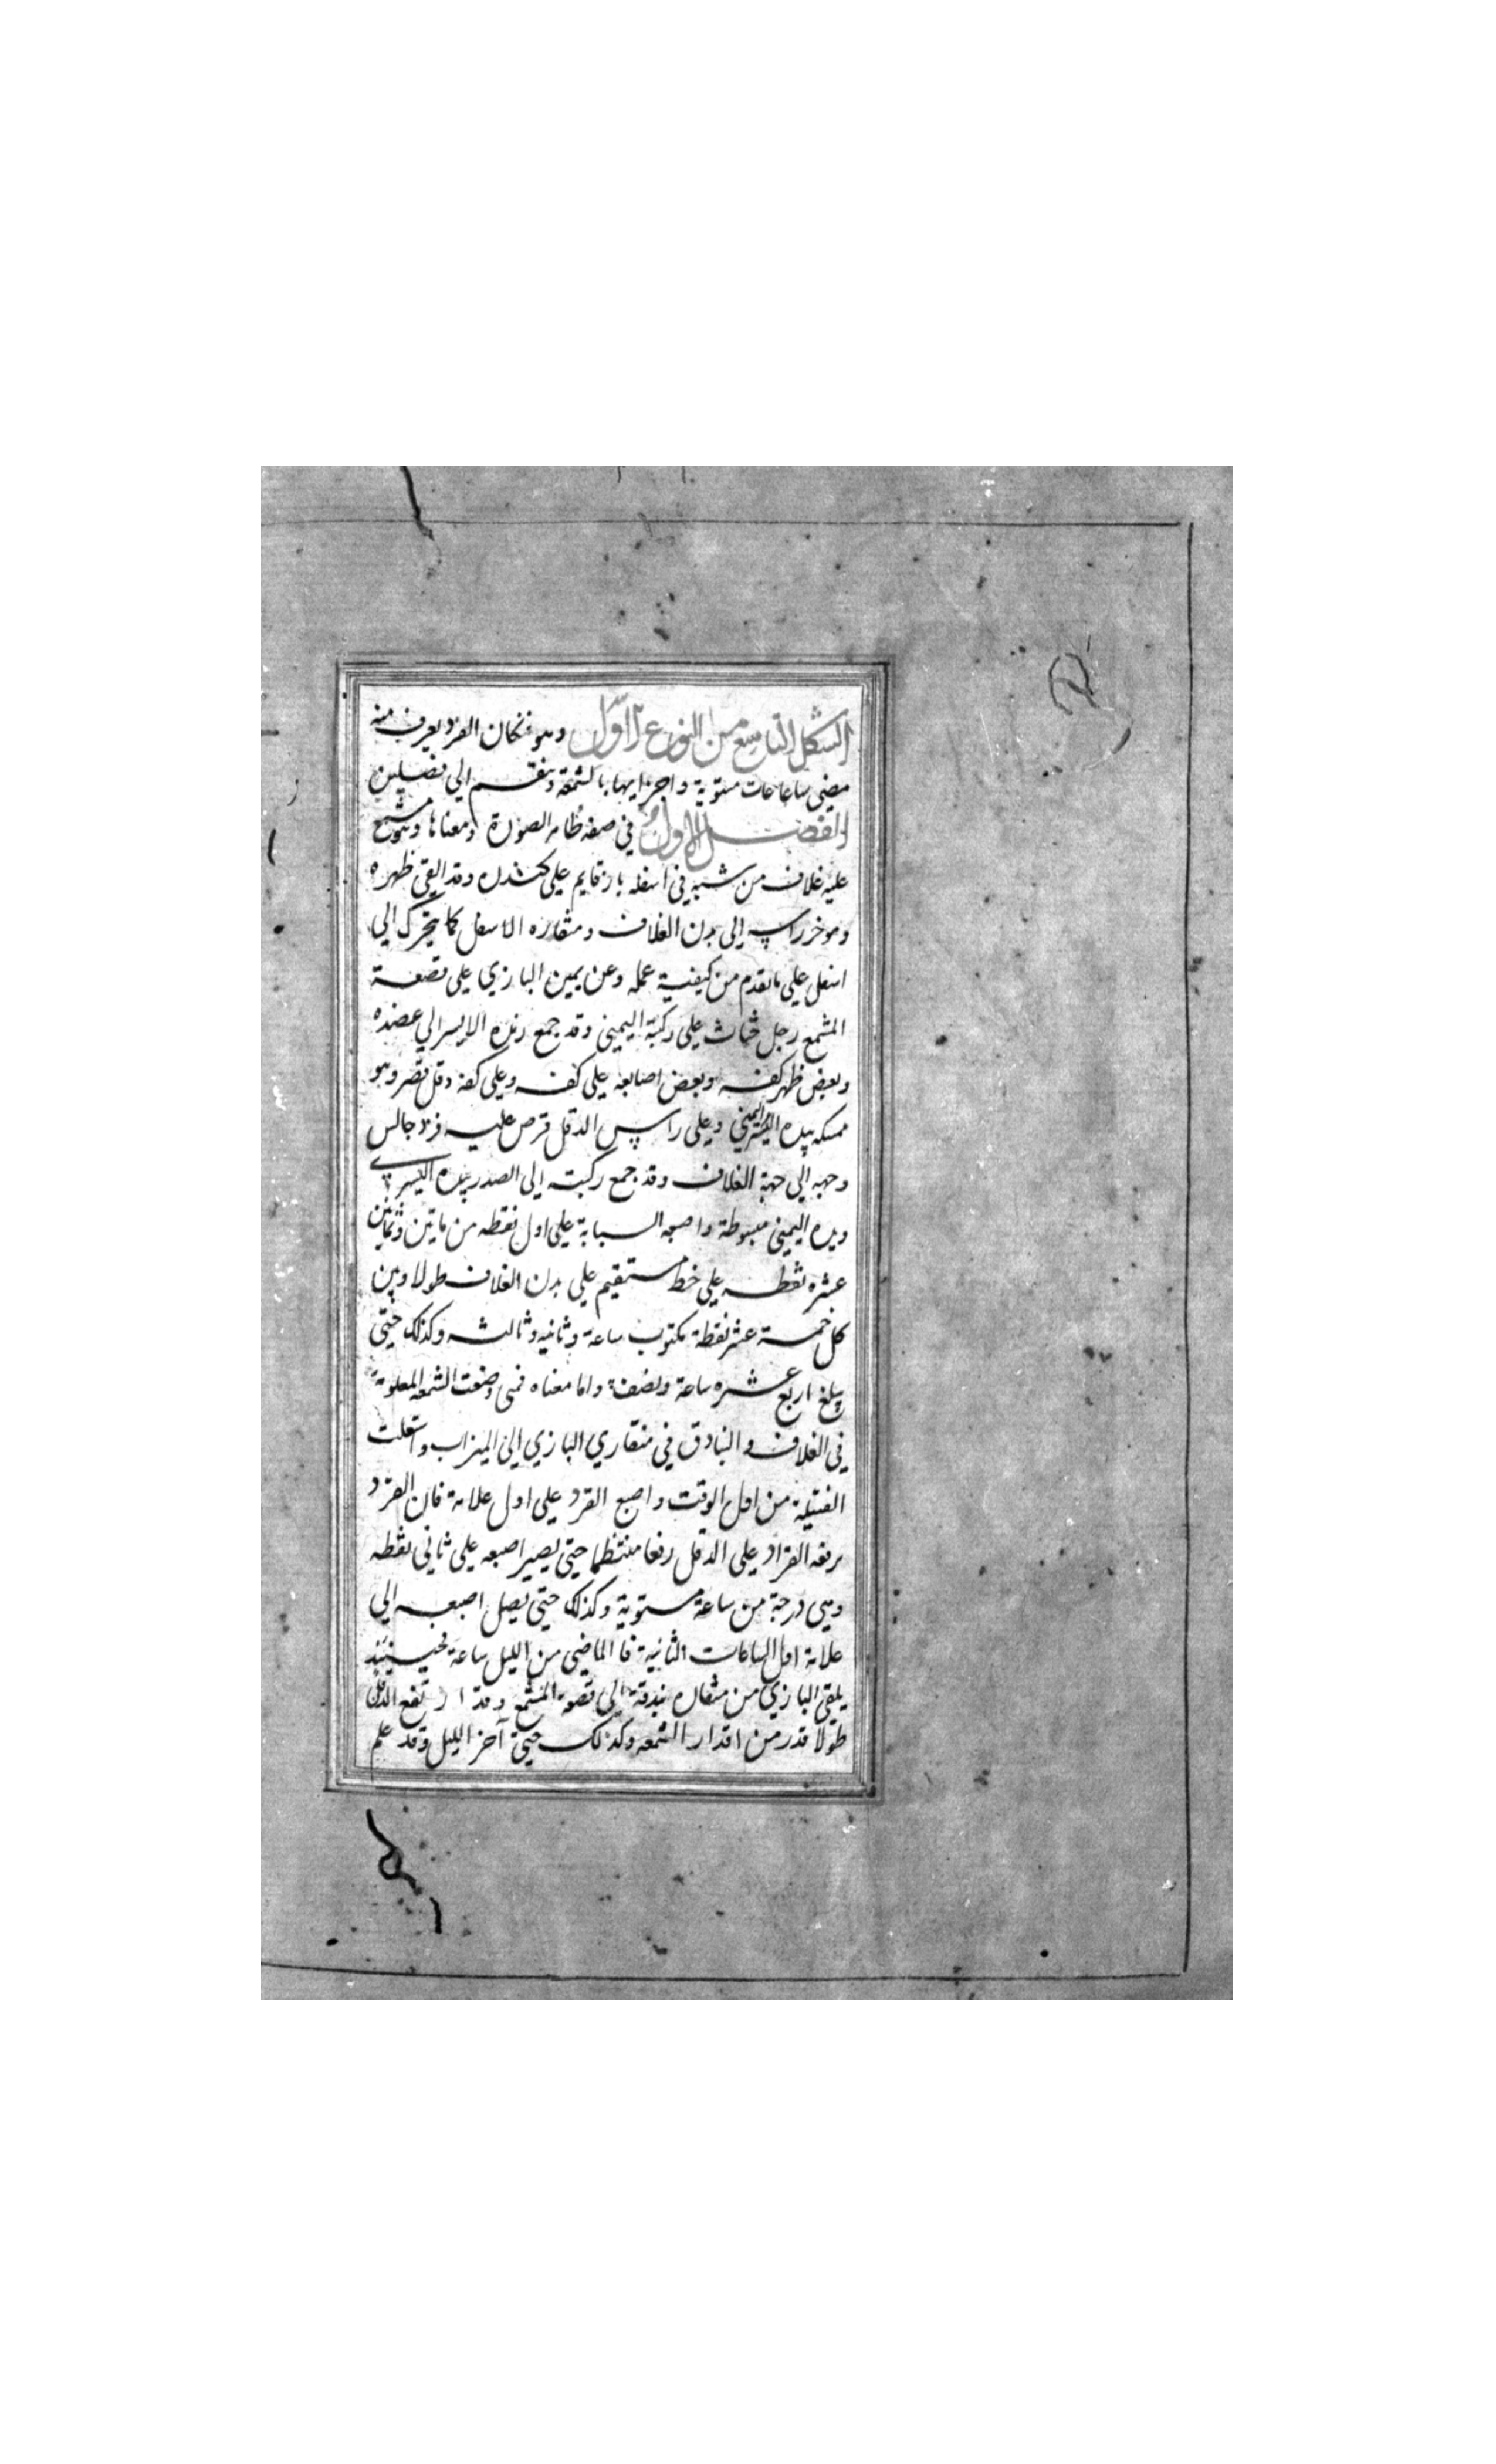 الشكل التاسع من النوع الاول وهو فنكان القرد يعرف منه
مضي ساعات مستوية واجزايها بالشمعة وينقسم الي فصلين
الفصل الاول في صفه ظاهر الصورة ومعناها وهو شمع
عليه غلاف من شبه في اسفله باز قايم علي كندره وقد القي ظهره
وموخر راسه الي بدن الغلاف ومنقاره الاسفل كما يتحرك الي
اسفل علي ما تقدم من كيفية عمله وعن يمين البازي علي قصعة
المشمع رجل جاث علي ركبة اليمني وقد جمع زنده الايسر الي عضده
وبعض ظهر كفه وبعض اصابعه علي كتفه وعلي كفه دقل قصر وهو
ممسكه بيده اليمني وعلي راس الدقل قرص عليه قرد جالس
وجهه الي جهة الغلاف وقد جمع ركبته الي الصدر بيده اليسري
ويده اليمني مبسوطة واصبعه السبابة علي اول نقطه من ماتين وثمانين
عشره نقطه علي خط مستقيم علي بدن الغلاف طولا وبين
كل خمسة عشر نقطة مكتوب ساعة وثانيه وثالثه وكذلك حتي
يبلغ اربع عشره ساعة ونصف واما معناه فمتي وضعت الشمعه المعلومة
في الغلاف والبنادق في منقاري البازي الي الميزاب واشعلت
الفتيلة من اول الوقت واصبع القرد علي اول علامة فان القرد
يرفعه القراد علي الدقل رفعا منتظما حتي يصير اصبعه علي ثاني نقطه
وهي درجة من ساعة مستوية وكذلك حتي يصل اصبعه الي
علامة اول الساعات الثانية فالماضي من الليل ساعة فحينئذ
يلقي البازي من منقاره بندقة الي قصعة المشمع وقد ارتفع الدقل
طولا قدر من اقدار الشمعه وكذلك حتي آخر الليل وقد علم